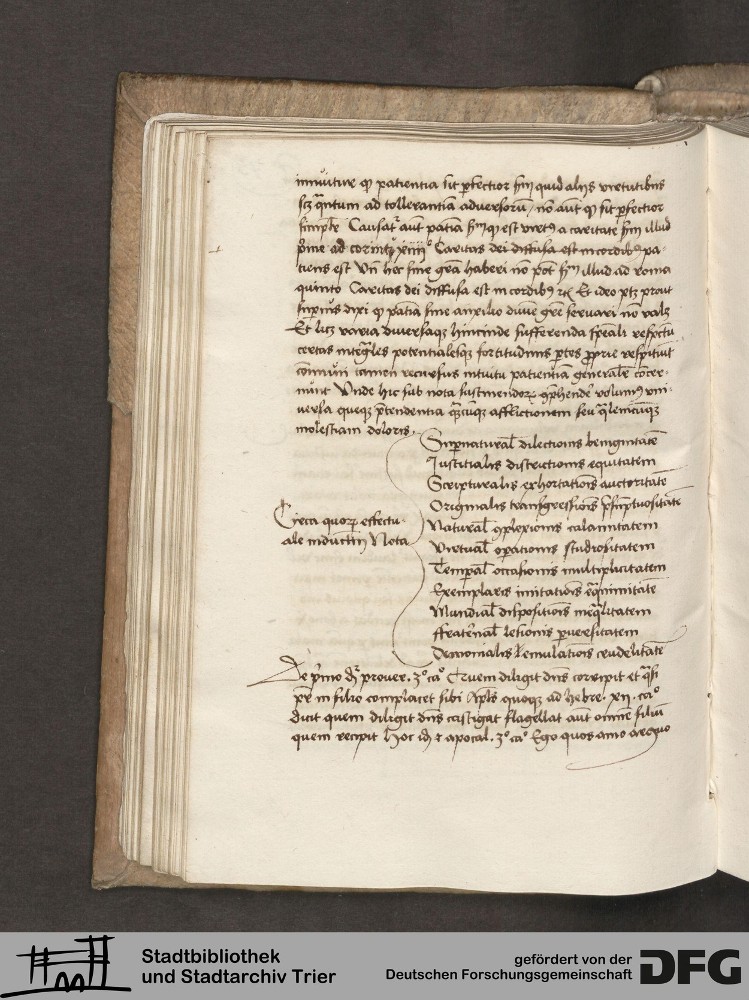 innuitur qp patientia sit pfectior sm quid alijs vrtutibus
scz qntum ad tollerantia adversoru / no aut qp sit pfectior
simplr Causat aut patia sm qp est vrtus a caritate sm illud
pme ad corinth xiiij Caritas dei diffusa est in cordib pa-
tiens est Vn hec sine gra haberi no pot sm illud ad roma
quinto Caritas dei diffusa est in cordib rc Et ideo ptz prout
supius dixi qp patia sine auxilio diuie gre servari no valz
Et licz varia diversaqz hincinde sufferenda spciali respctu
certas integles potentialesqz fortitudinis ptes pprie respiciut
comuni tamen recursus intuitu patientia generale cocer-
nunt Unde hic sub nota sustinendoz gphende volum vni-
versa queqz ptendentia qcuqz afflictionem seu qlemcuqz
molestiam doloris
Supnatural dilectionis benignitate
Justicialis districtionis equitatem
Scripturalis exhortationis auctoritate
Originalis transgressionis psuptuositate
Circa quorp effectu-
ale inductm Nota
Natural gplexionis calamitatem
Virtual opationis studiositatem
Tempal occasionis multiplicitatem
Exemplaris imitationis equanimitate
Mundial dispositionis inequlitatem
ffraternal lesionis pversitatem
Demonialis emulationis crudelitate
De pmo dr prover. 3º caº Quem diligit dns corripit et qsi
pr in filio complacet sibi Apls quoqz ad hebre. xij. caº
dicit quem diligit dns castigat flagellat aut omne filiu
quem recipit Hoc id apocal. 3º caº Ego quos amo arguo
Stadtbibliothek
und Stadtarchiv Trier
gefördert von der
Deutschen Forschungsgemeinschaft
DFG